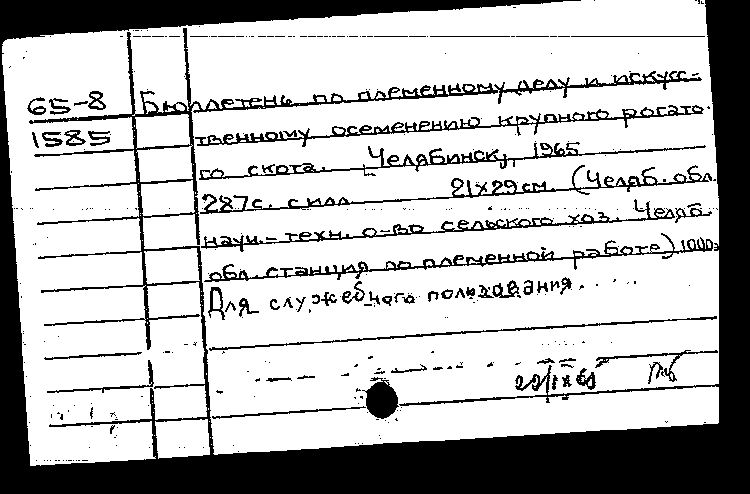 65-8 Бюллетень по племенному делу и искусс-
1585 твенному осеменению крупного рогато-
го скота. Челябинск, 1965
287с. с илл 21х29 см. (Челяб. обл.
науч.-техн. о-во сельского хоз. Челяб.
обл. станция по племенной работе) 1000э
Для служебного пользования.